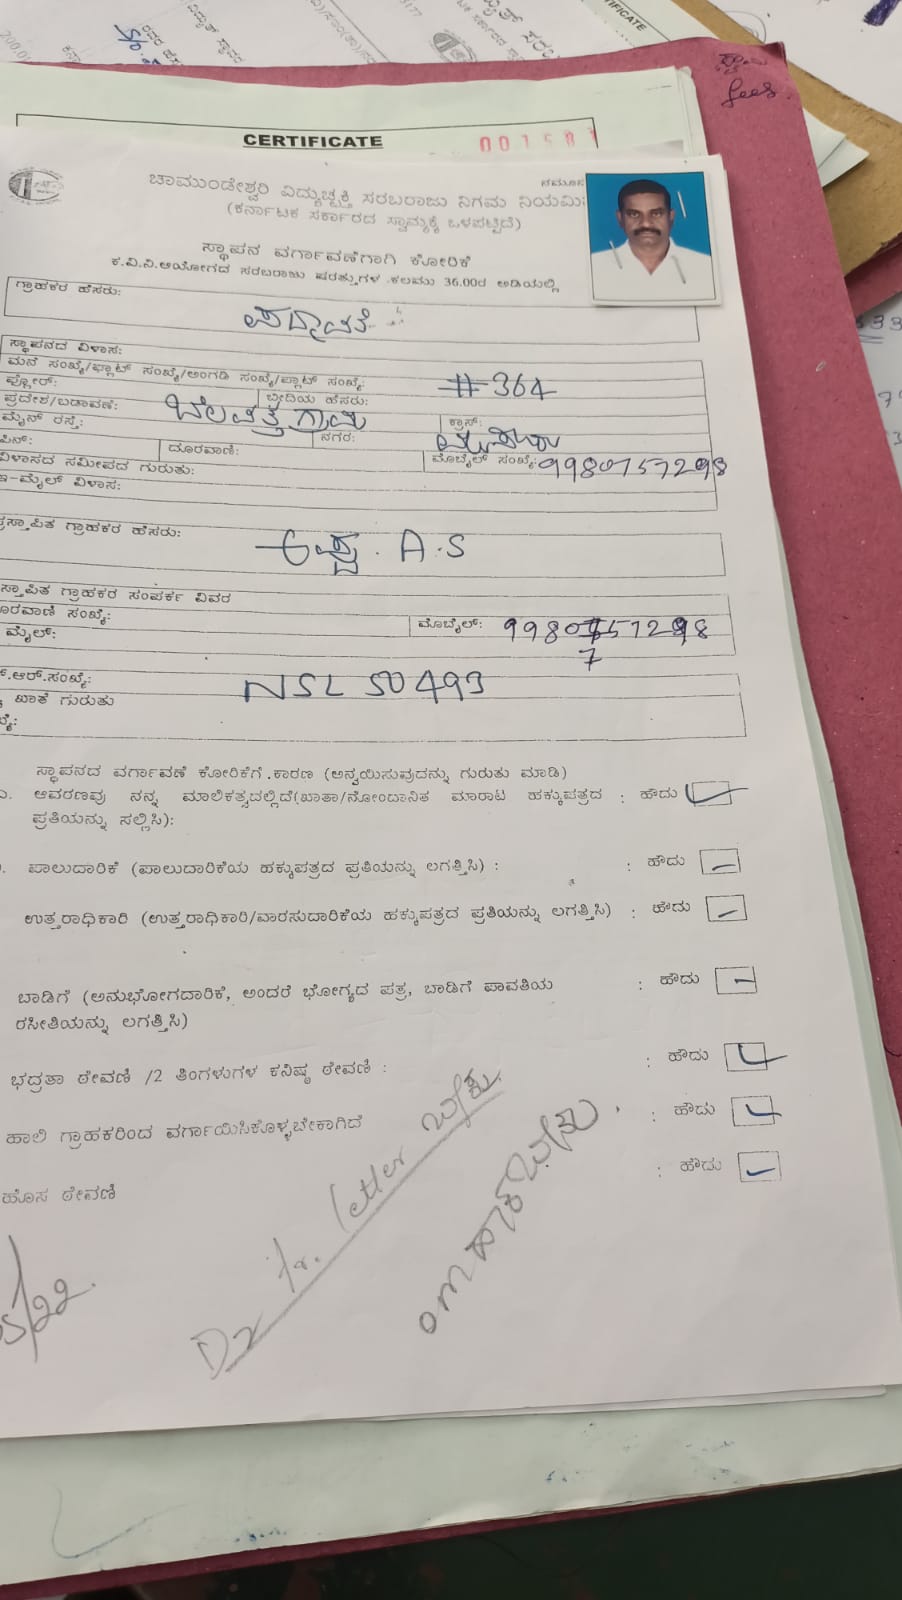 ವಿದ್ಯುತ್ ಸರಬ
CERTIFICATE
200.0
fees.
CERTIFICATE
ಚಾಮುಂಡೇಶ್ವರಿ ವಿದ್ಯುಚ್ಛಕ್ತಿ ಸರಬರಾಜು ನಿಗಮ ನಿಯಮಿ
(ಕರ್ನಾಟಕ ಸರ್ಕಾರದ ಸ್ವಾಮ್ಯಕ್ಕೆ ಒಳಪಟ್ಟಿದೆ)
ಸ್ಥಾಪನ ವರ್ಗಾವಣೆಗಾಗಿ ಕೋರಿಕೆ
ಕ.ವಿ.ನಿ.ಆಯೋಗದ ಸರಬರಾಜು ಷರತ್ತುಗಳ .ಕಲಮು 36.00ರ ಅಡಿಯಲ್ಲಿ
ಗ್ರಾಹಕರ ಹೆಸರು:
ಪದ್ಮಾವತಿ
ಸ್ಥಾಪನದ ವಿಳಾಸ:
ಮನೆ ಸಂಖ್ಯೆ/ಫ್ಲಾಟ್ ಸಂಖ್ಯೆ/ಅಂಗಡಿ ಸಂಖ್ಯೆ/ಪ್ಲಾಟ್ ಸಂಖ್ಯೆ: #364
ಫ್ಲೋರ್: ಬೀದಿಯ ಹೆಸರು:
ಪ್ರದೇಶ/ಬಡಾವಣೆ: ಬೆಲವತ್ತ ಗ್ರಾಮ ಕ್ರಾಸ್:
ಮೈನ್ ರಸ್ತೆ: ನಗರ: ಮೈಸೂರು
ಪಿನ್: ದೂರವಾಣಿ: ಮೊಬೈಲ್ ಸಂಖ್ಯೆ: 9980757298
ವಿಳಾಸದ ಸಮೀಪದ ಗುರುತು:
ಇ-ಮೈಲ್ ವಿಳಾಸ:
ಪ್ರಸ್ತಾಪಿತ ಗ್ರಾಹಕರ ಹೆಸರು:
A.S
ಸ್ತಾಪಿತ ಗ್ರಾಹಕರ ಸಂಪರ್ಕ ವಿವರ
ೂರವಾಣಿ ಸಂಖ್ಯೆ: ಮೊಬೈಲ್: 9980757298
7
ಮೈಲ್:
.ಆರ್.ಸಂಖ್ಯೆ: NSL 50493
ಖಾತೆ ಗುರುತು
ಸ್ಥಾಪನದ ವರ್ಗಾವಣೆ ಕೋರಿಕೆಗೆ .ಕಾರಣ (ಅನ್ವಯಿಸುವುದನ್ನು ಗುರುತು ಮಾಡಿ)
ಆವರಣವು ನನ್ನ ಮಾಲಿಕತ್ವದಲ್ಲಿದೆ(ಖಾತಾ/ನೋಂದಾನಿತ ಮಾರಾಟ ಹಕ್ಕುಪತ್ರದ : ಹೌದು
ಪ್ರತಿಯನ್ನು ಸಲ್ಲಿಸಿ):
ಪಾಲುದಾರಿಕೆ (ಪಾಲುದಾರಿಕೆಯ ಹಕ್ಕುಪತ್ರದ ಪ್ರತಿಯನ್ನು ಲಗತ್ತಿಸಿ) : : ಹೌದು
ಉತ್ತರಾಧಿಕಾರಿ (ಉತ್ತರಾಧಿಕಾರಿ/ವಾರಸುದಾರಿಕೆಯ ಹಕ್ಕುಪತ್ರದ ಪ್ರತಿಯನ್ನು ಲಗತ್ತಿಸಿ) : ಹೌದು
ಬಾಡಿಗೆ (ಅನುಭೋಗದಾರಿಕೆ, ಅಂದರೆ ಭೋಗ್ಯದ ಪತ್ರ, ಬಾಡಿಗೆ ಪಾವತಿಯ : ಹೌದು
ರಸೀತಿಯನ್ನು ಲಗತ್ತಿಸಿ)
ಭದ್ರತಾ ಠೇವಣಿ /2 ತಿಂಗಳುಗಳ ಕನಿಷ್ಠ ಠೇವಣಿ : : ಹೌದು
ಹಾಲಿ ಗ್ರಾಹಕರಿಂದ ವರ್ಗಾಯಿಸಿಕೊಳ್ಳಬೇಕಾಗಿದೆ : ಹೌದು
ಹೊಸ ಠೇವಣಿ : ಹೌದು
letter ಬೇಕು.
/22